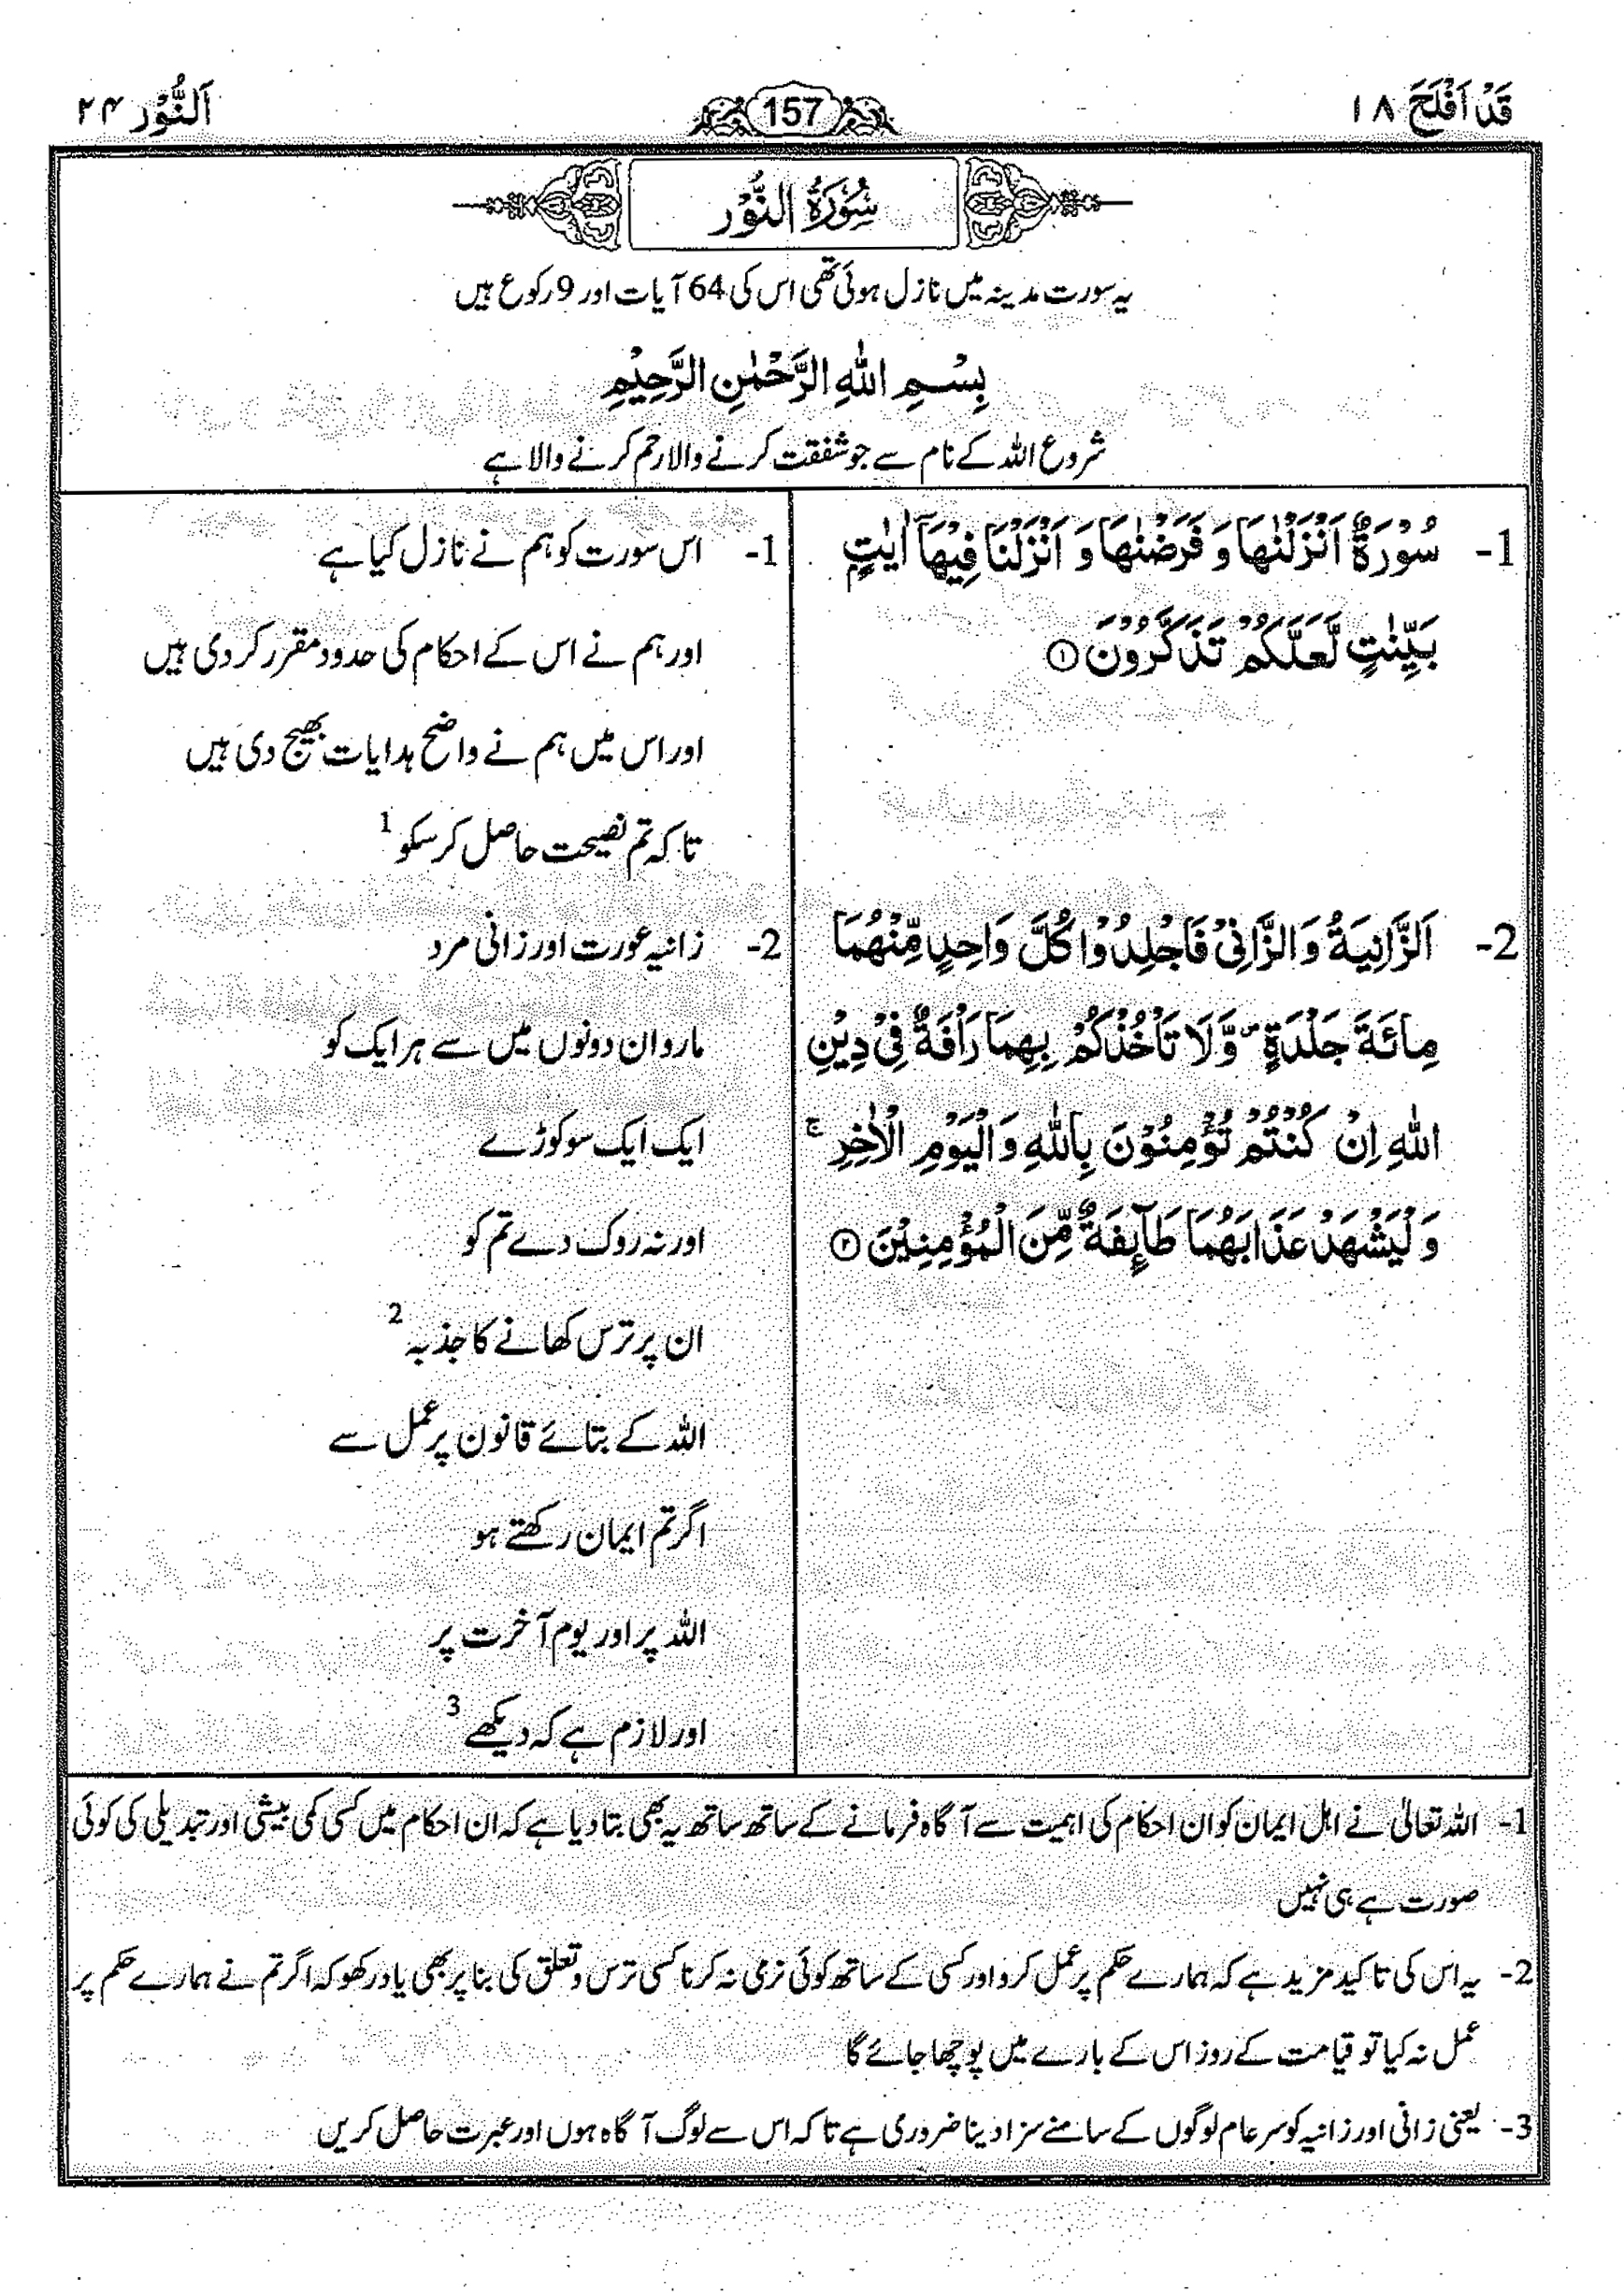 قَدْ اَفْلَحَ ۱۸
157
اَلنُّوْر ۲۴
سُوْرَةُ النُّوْر
یہ سورت مدینہ میں نازل ہوئی تھی اس کی 64 آیات اور 9 رکوع ہیں
بِسْمِ اللّٰهِ الرَّحْمٰنِ الرَّحِيْمِ
شروع اللہ کے نام سے جو شفقت کرنے والا رحم کرنے والا ہے
1- سُوْرَةٌ اَنْزَلْنٰهَا وَ فَرَضْنٰهَا وَ اَنْزَلْنَا فِيْهَآ اٰيٰتٍۭ
بَيِّنٰتٍ لَّعَلَّكُمْ تَذَكَّرُوْنَ ۝۱
2- اَلزَّانِيَةُ وَ الزَّانِيْ فَاجْلِدُوْا كُلَّ وَاحِدٍ مِّنْهُمَا
مِائَةَ جَلْدَةٍ ۪ وَّ لَا تَاْخُذْكُمْ بِهِمَا رَاْفَةٌ فِيْ دِيْنِ
اللّٰهِ اِنْ كُنْتُمْ تُؤْمِنُوْنَ بِاللّٰهِ وَ الْيَوْمِ الْاٰخِرِ ۚ
وَ لْيَشْهَدْ عَذَابَهُمَا طَآىِٕفَةٌ مِّنَ الْمُؤْمِنِيْنَ ۝۲
1- اس سورت کو ہم نے نازل کیا ہے
اور ہم نے اس کے احکام کی حدود مقرر کر دی ہیں
اور اس میں ہم نے واضح ہدایات بھیج دی ہیں
تاکہ تم نصیحت حاصل کر سکو 1
2- زانیہ عورت اور زانی مرد
مارو ان دونوں میں سے ہر ایک کو
ایک ایک سو کوڑے
اور نہ روک دے تم کو
ان پر ترس کھانے کا جذبہ 2
اللہ کے بتائے قانون پر عمل سے
اگر تم ایمان رکھتے ہو
اللہ پر اور یوم آخرت پر
اور لازم ہے کہ دیکھے 3
1- اللہ تعالیٰ نے اہل ایمان کو ان احکام کی اہمیت سے آگاہ فرمانے کے ساتھ ساتھ یہ بھی بتا دیا ہے کہ ان احکام میں کسی کمی بیشی اور تبدیلی کی کوئی
صورت ہے ہی نہیں
2- یہ اس کی تاکید مزید ہے کہ ہمارے حکم پر عمل کرو اور کسی کے ساتھ کوئی نرمی نہ کرنا کسی ترس و تعلق کی بنا پر بھی یاد رکھو کہ اگر تم نے ہمارے حکم پر
عمل نہ کیا تو قیامت کے روز اس کے بارے میں پوچھا جائے گا
3- یعنی زانی اور زانیہ کو سر عام لوگوں کے سامنے سزا دینا ضروری ہے تاکہ اس سے لوگ آگاہ ہوں اور عبرت حاصل کریں